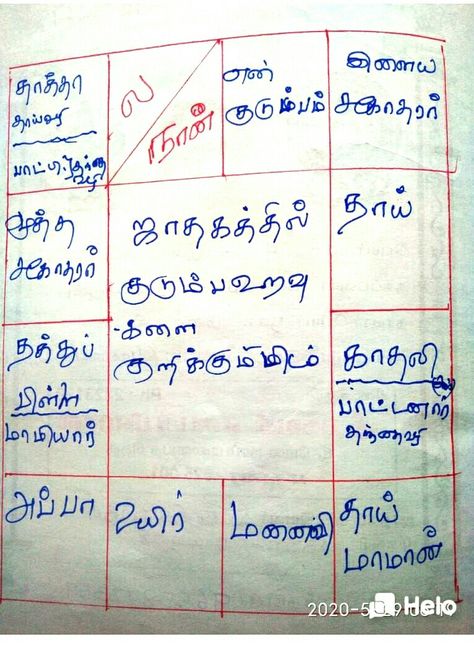 தாத்தா
தாய்வழி
பாட்டி தந்தை
வழி
ல
நான்
என்
குடும்பம்
இளைய
சகோதரர்
மூத்த
சகோதரர்
ஜாதகத்தில்
குடும்பஉறவு
-களை
குறிக்கும்மிடம்
தாய்
தத்துப்
பிள்ளை
மாமியார்
காதலி
பாட்டனார்
தந்தைவழி
அப்பா
உயிர்
மனைவி
தாய்
மாமான்
Helo